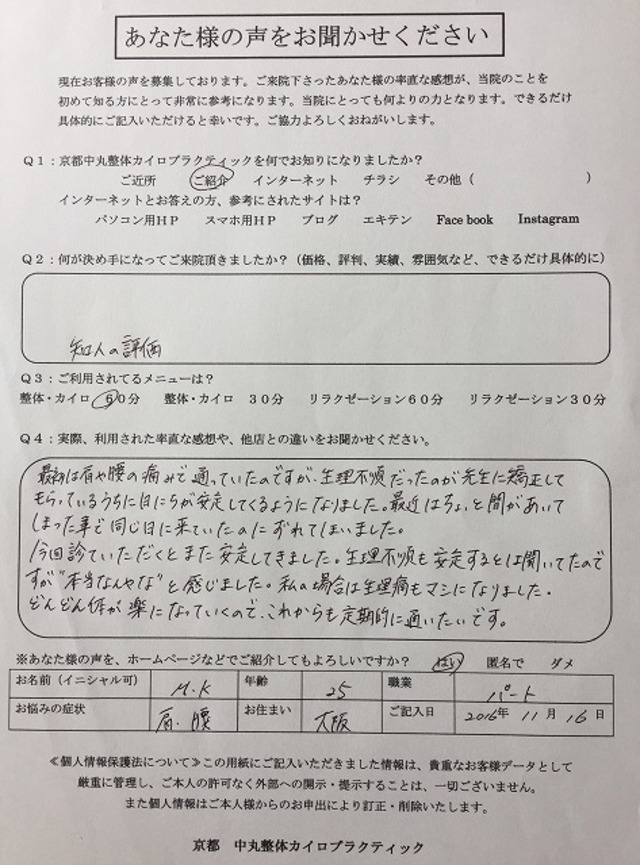 あなた様の声をお聞かせください
現在お客様の声を募集しております。ご来院下さったあなた様の率直な感想が、当院のことを
初めて知る方にとって非常に参考になります。当院にとっても何よりの力となります。できるだけ
具体的にご記入いただけると幸いです。ご協力よろしくおねがいします。
Q1：京都中丸整体カイロプラクティックを何でお知りになりましたか？
ご近所　ご紹介　インターネット　チラシ　その他（　　　）
インターネットとお答えの方、参考にされたサイトは？
パソコン用HP　スマホ用HP　ブログ　エキテン　Face book　Instagram
Q2：何が決め手になってご来院頂きましたか？（価格、評判、実績、雰囲気など、できるだけ具体的に）
知人の評価
Q3：ご利用されてるメニューは？
整体・カイロ　60分　整体・カイロ　30分　リラクゼーション60分　リラクゼーション30分
Q4：実際、利用された率直な感想や、他店との違いをお聞かせください。
最初は肩や腰の痛みで通っていたのですが、生理不順だったのが先生に矯正して
もらっているうちに日にちが安定してくるようになりました。最近はちょっと間があいて
しまった事で同じ日に来ていたのにずれてしまいました。
今回診ていただくとまた安定してきました。生理不順も安定するとは聞いてたので
すが"本当なんやな"と感じました。私の場合は生理痛もマシになりました．
どんどん体が楽になっていくので、これからも定期的に通いたいです。
※あなた様の声を、ホームページなどでご紹介してもよろしいですか？　はい　匿名で　ダメ
お名前（イニシャル可）　M.K　年齢　25　職業　パート
お悩みの症状　肩．腰　お住まい　大阪　ご記入日　2016年 11月 16日
≪個人情報保護法について≫この用紙にご記入いただきました情報は、貴重なお客様データとして
厳重に管理し、ご本人の許可なく外部への開示・提示することは、一切ございません。
また個人情報はご本人様からのお申出により訂正・削除いたします。
京都　中丸整体カイロプラクティック